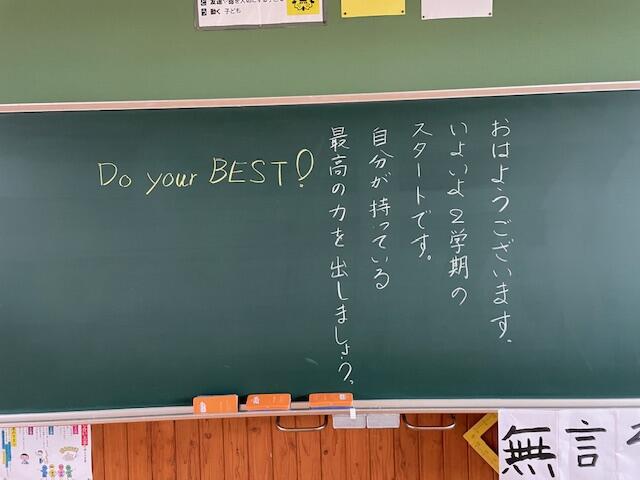 おはようございます。
いよいよ2学期の
スタートです。
自分が持っている
最高の力を出しましょう。
Do your BEST!
動く 子ども
無言